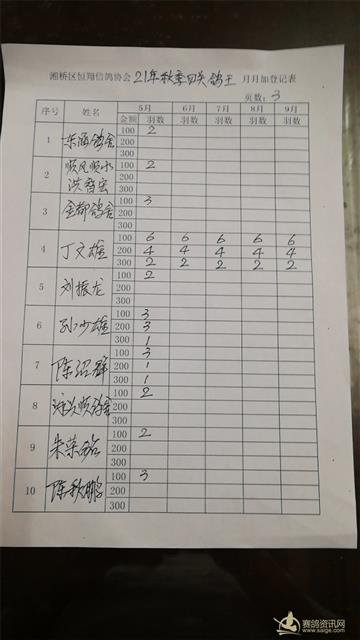 湘桥区恒翔信鸽协会 21年秋季四关鸽王 月月加登记表
页数: 3
序号 姓名 5月 6月 7月 8月 9月
金额 羽数 羽数 羽数 羽数 羽数
1 东涵鸽舍 100 2
200
300
2 顺风顺水 100 2
洪哲宏 200
300
3 金都鸽舍 100 3
200
300
4 丁文雄 100 6 6 6 6 6
200 4 4 4 4 4
300 2 2 2 2 2
5 刘振龙 100 2
200
300
6 孙少雄 100 3
200 3
300 1
7 陈绍群 100 3
200 1
300 1
8 兴顺鸽舍 100 2
200
300
9 朱荣 100 2
200
300
10 陈秋鹏 100 3
200
300
赛鸽资讯网
www.saige.com